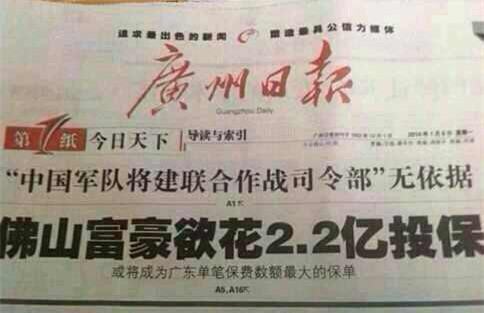 追求最出色的新闻 塑造最具公信力媒体
廣州日報
Guangzhou Daily
第1纸 今日天下 导读与索引
2014年1月6日 星期一
“中国军队将建联合作战司令部”无依据
A1
佛山富豪欲花2.2亿投保
或将成为广东单笔保费数额最大的保单
A5、A16